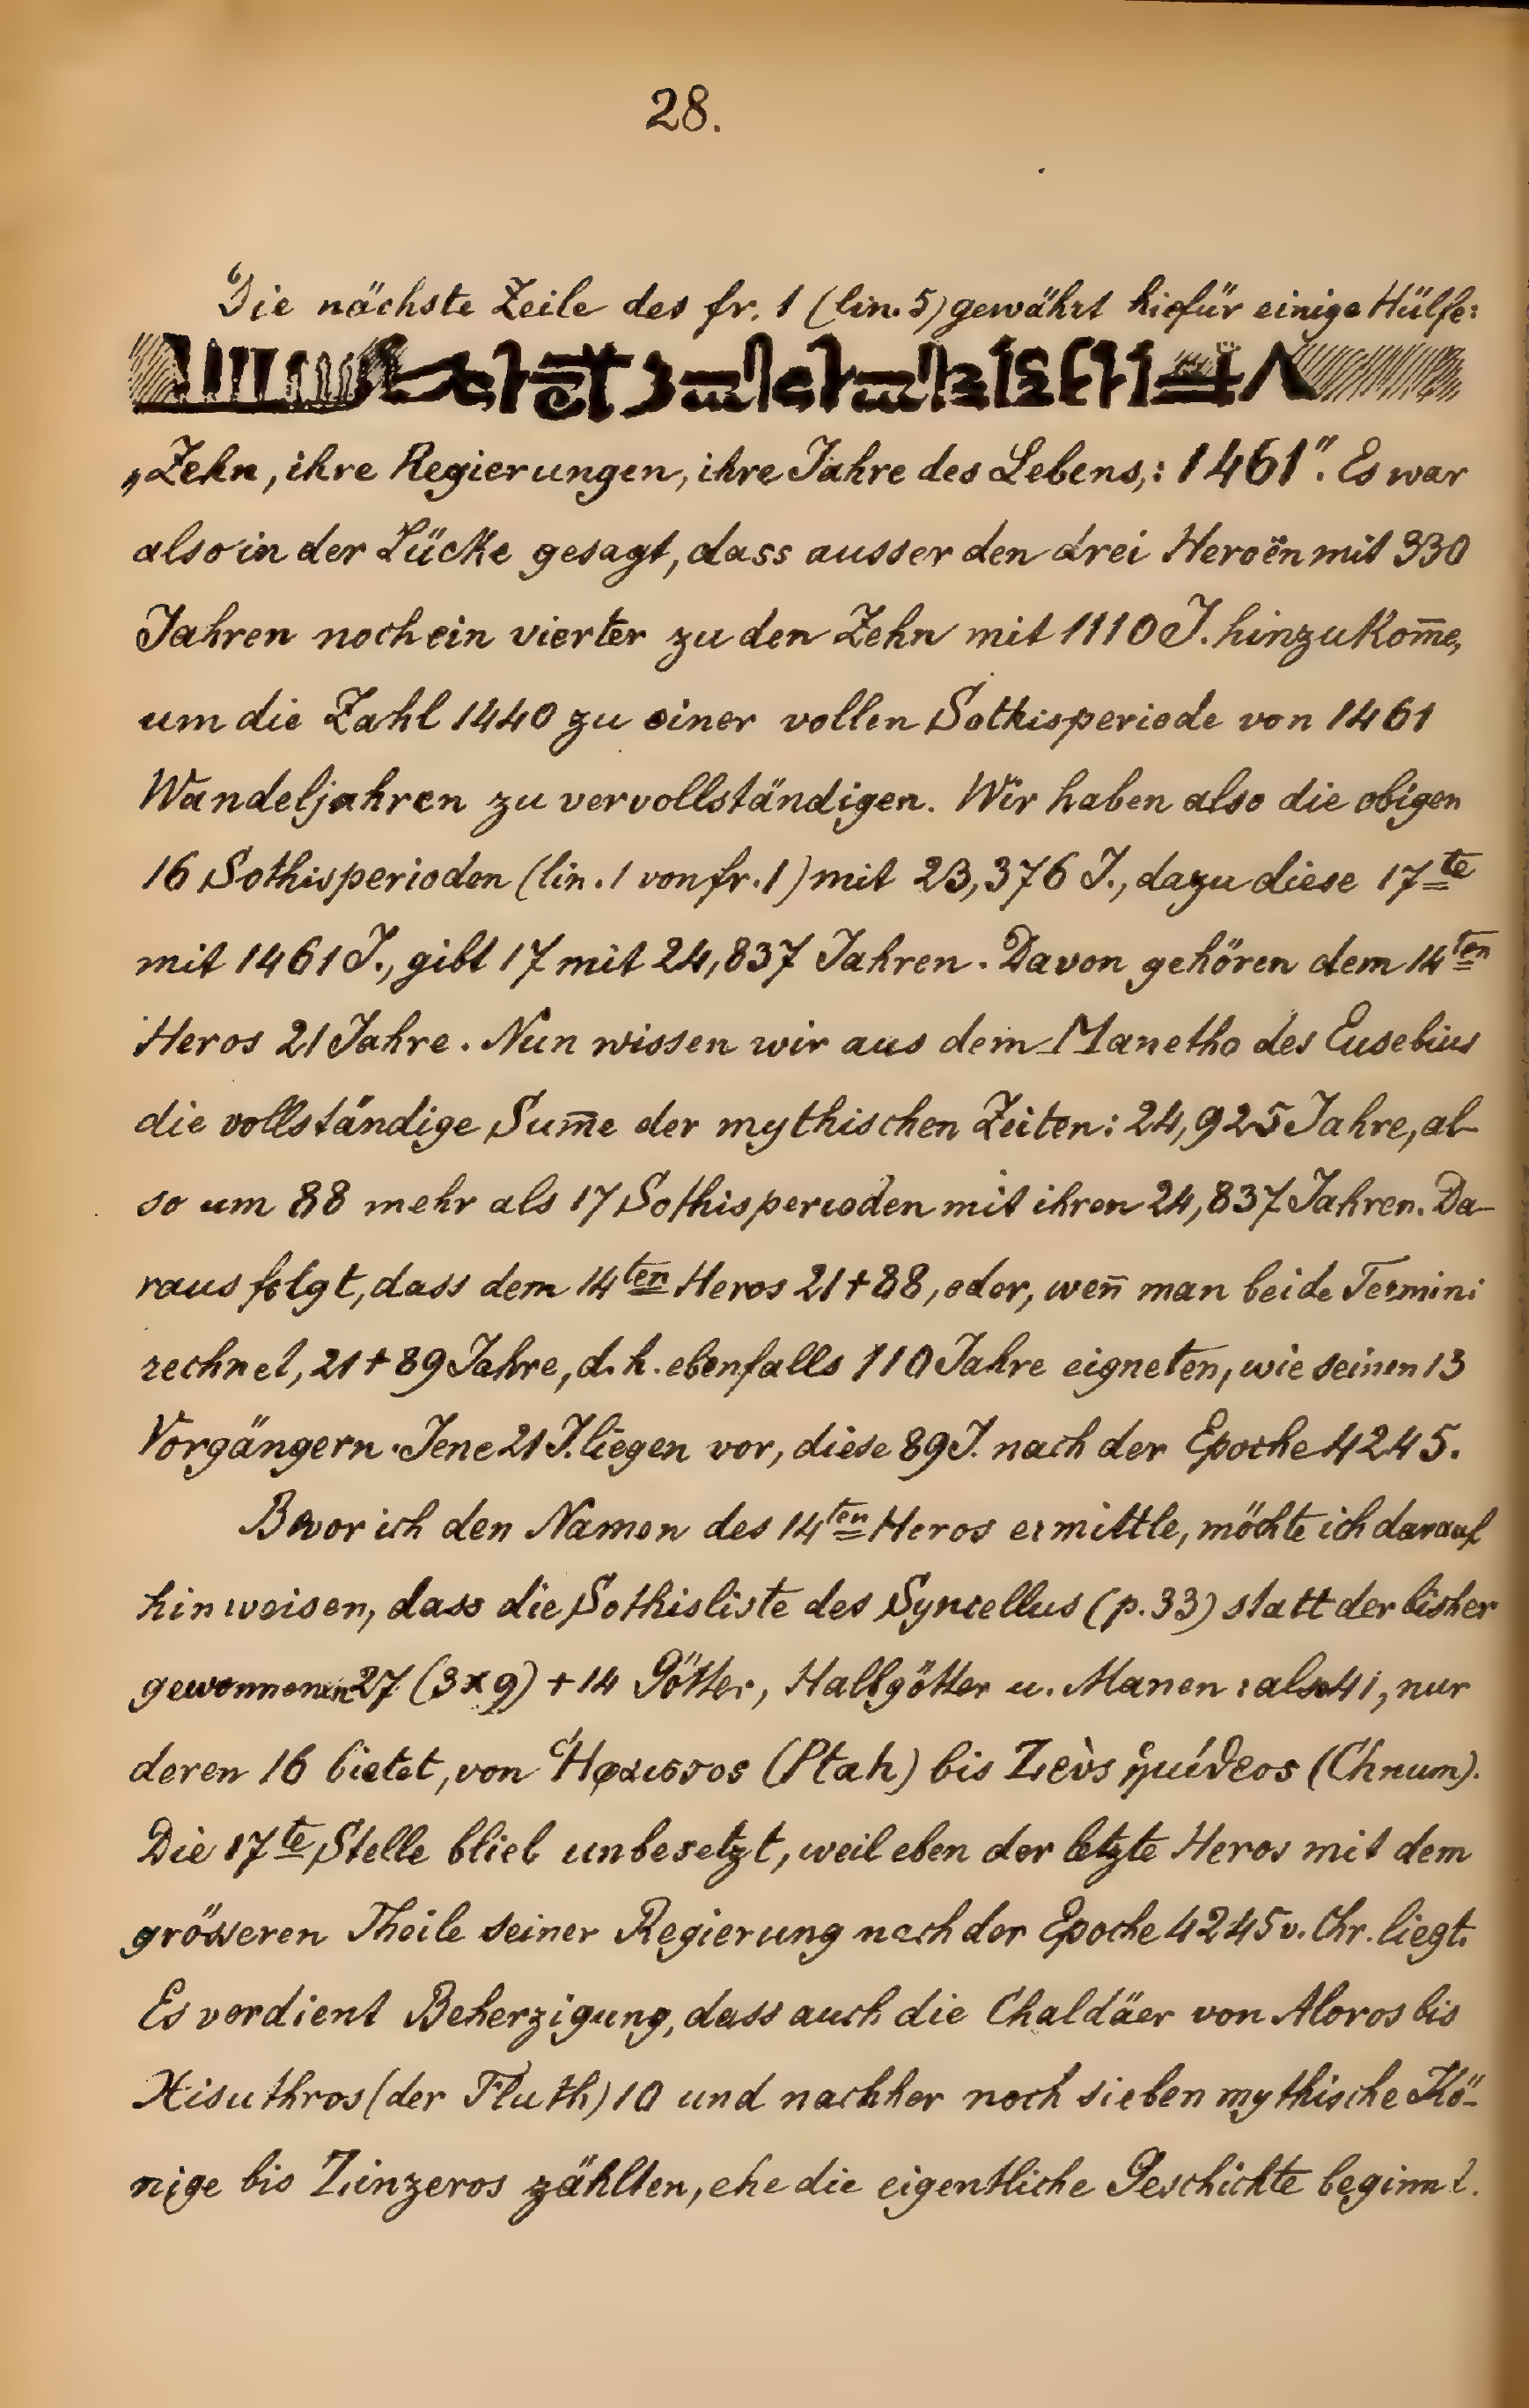 28.
Die nächste Zeile des fr. 1 (lin. 5) gewährt hiefür einige Hülfe:
„Zehn, ihre Regierungen, ihre Jahre des Lebens,: 1461". Es war
also in der Lücke gesagt, dass ausser den drei Heroën mit 330
Jahren noch ein vierter zu den Zehn mit 1110 J. hinzukom̅e,
um die Zahl 1440 zu einer vollen Sothisperiode von 1461
Wandeljahren zu vervollständigen. Wir haben also die obigen
16 Sothisperioden (lin. 1 von fr. 1) mit 23,376 J., dazu diese 17te
mit 1461 J., gibt 17 mit 24,837 Jahren. Davon gehören dem 14ten
Heros 21 Jahre. Nun wissen wir aus dem Manetho des Eusebius
die vollständige Sum̅e der mythischen Zeiten: 24,925 Jahre, al-
so um 88 mehr als 17 Sothisperioden mit ihren 24,837 Jahren. Da-
raus folgt, dass dem 14ten Heros 21+88, oder, wen̅ man beide Termini
rechnet, 21+89 Jahre, d. h. ebenfalls 110 Jahre eigneten, wie seinen 13
Vorgängern. Jene 21 J. liegen vor, diese 89 J. nach der Epoche 4245.
Bevor ich den Namen des 14ten Heros ermittle, möchte ich darauf
hinweisen, dass die Sothisliste des Syncellus (p. 33) statt der bisher
gewonnenen 27 (3x9) + 14 Götter, Halbgötter u. Manen: also 41, nur
deren 16 bietet, von Ἥφαιστος (Ptah) bis Ζεὺς ἡμίθεος (Chnum).
Die 17te Stelle blieb unbesetzt, weil eben der letzte Heros mit dem
grösseren Theile seiner Regierung nach der Epoche 4245 v. Chr. liegt.
Es verdient Beherzigung, dass auch die Chaldäer von Aloros bis
Xisuthros (der Fluth) 10 und nachher noch sieben mythische Kö-
nige bis Zinzeros zählten, ehe die eigentliche Geschichte beginnt.